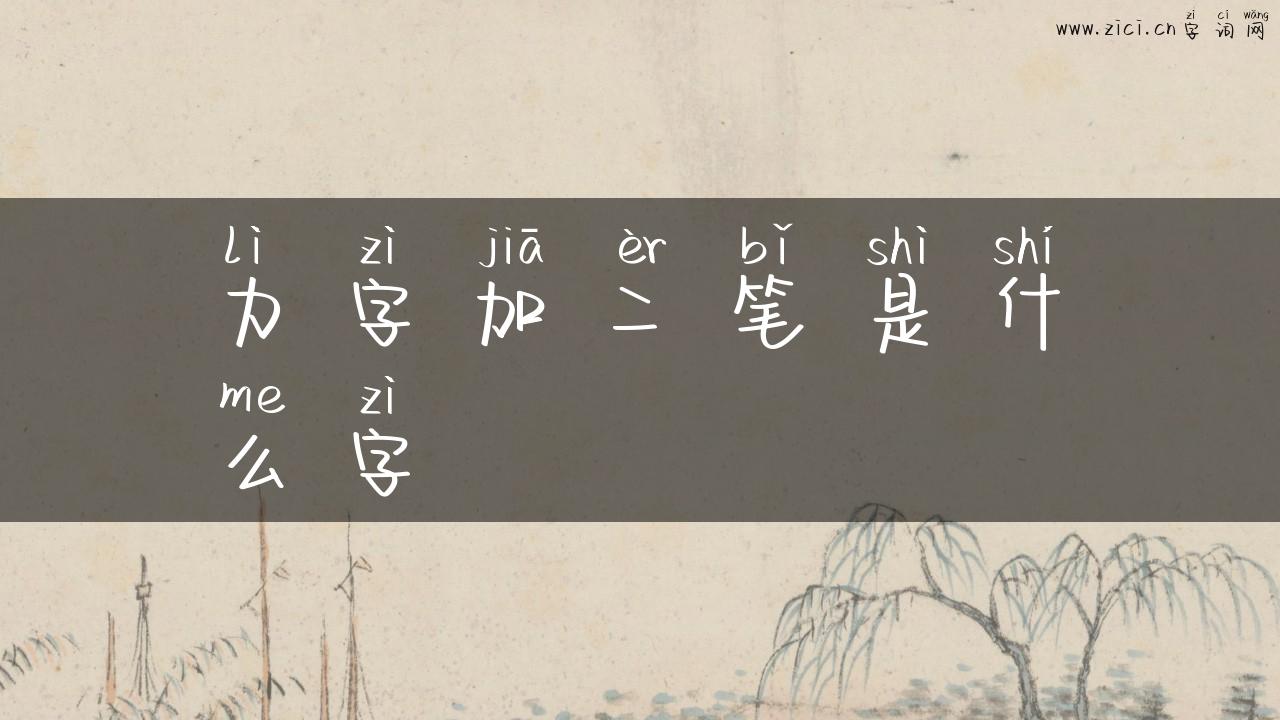 zì cí wǎng
www.zici.cn 字词网
lì zì jiā èr bǐ shì shí
力字加二笔是什
me zì
么字